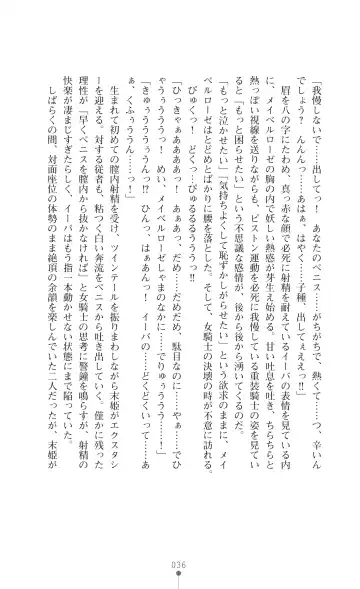 「我慢しないで……出してッ！　あなたのペニス……がちがちで、熱くて……つ、辛いん
でしょう？　んんんっ……あはぁ、はやく……子種、出してぇぇぇっ!!」
眉を八の字にたわめ、真っ赤な顔で必死に射精を耐えているイーバの表情を見ている内
に、メイベルローゼの胸の内で妖しい熱感が芽生え始める。甘い吐息を吐き、ちらちらと
熱っぽい視線を送りながらも、ピストン運動を必死に我慢している重装騎士の姿を見てい
ると「もっと困らせたい」という不思議な感情が、後から後から湧いてくるのだ。
「もっと泣かせたい」「気持ちよくして恥ずかしがらせたい」という欲求のままに、メイ
ベルローゼはとどめとばかりに腰を落とした。そして、女騎士の決壊の時が不意に訪れる。
びゅくっ！　どくっ……びゅるるるうううっ!!
「ひっきゃぁああああっ！　あぁあっ、だめ……だめだめ、駄目なのに……やぁ……でひ
ゃうぅううううっ！　めい、メイベルローゼしゃまのなかに……でりゅううう……！」
「きゅぅううううぅんっ!?　ひぁっ、はぁあんっ！　イーバの……どくどくいって……あ
ぁ、くふぅううううっ！」
生まれて初めての膣内射精を受け、ツインテールを振りまわしながら末姫がエクスタシ
ーを迎える。対する従者も、粘つく白い奔流をペニスから吐き出していく。僅かに残った
理性が「早くペニスを膣内から抜かなければ」と女騎士の思考に警鐘を鳴らすが、射精の
快楽が凄まじすぎたらしく、イーバはもう指一本動かせない状態にまで陥っていた。
しばらくの間、対面座位の体勢のまま絶頂の余韻を楽しんでいた二人だったが、末姫が
036